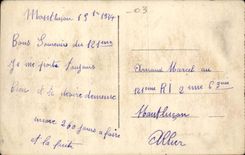 03
Montluçon 19 1924
Bons Souvenirs du 121eme
Je me porte toujours
Bien et te desire de meme
encore 200 jours a faire
et la fuite
Armand Marcel au
121eme RI 2eme Cie
Montluçon
Allier